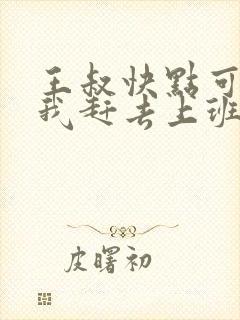 王叔快點可
我赶去上班
皮曙初